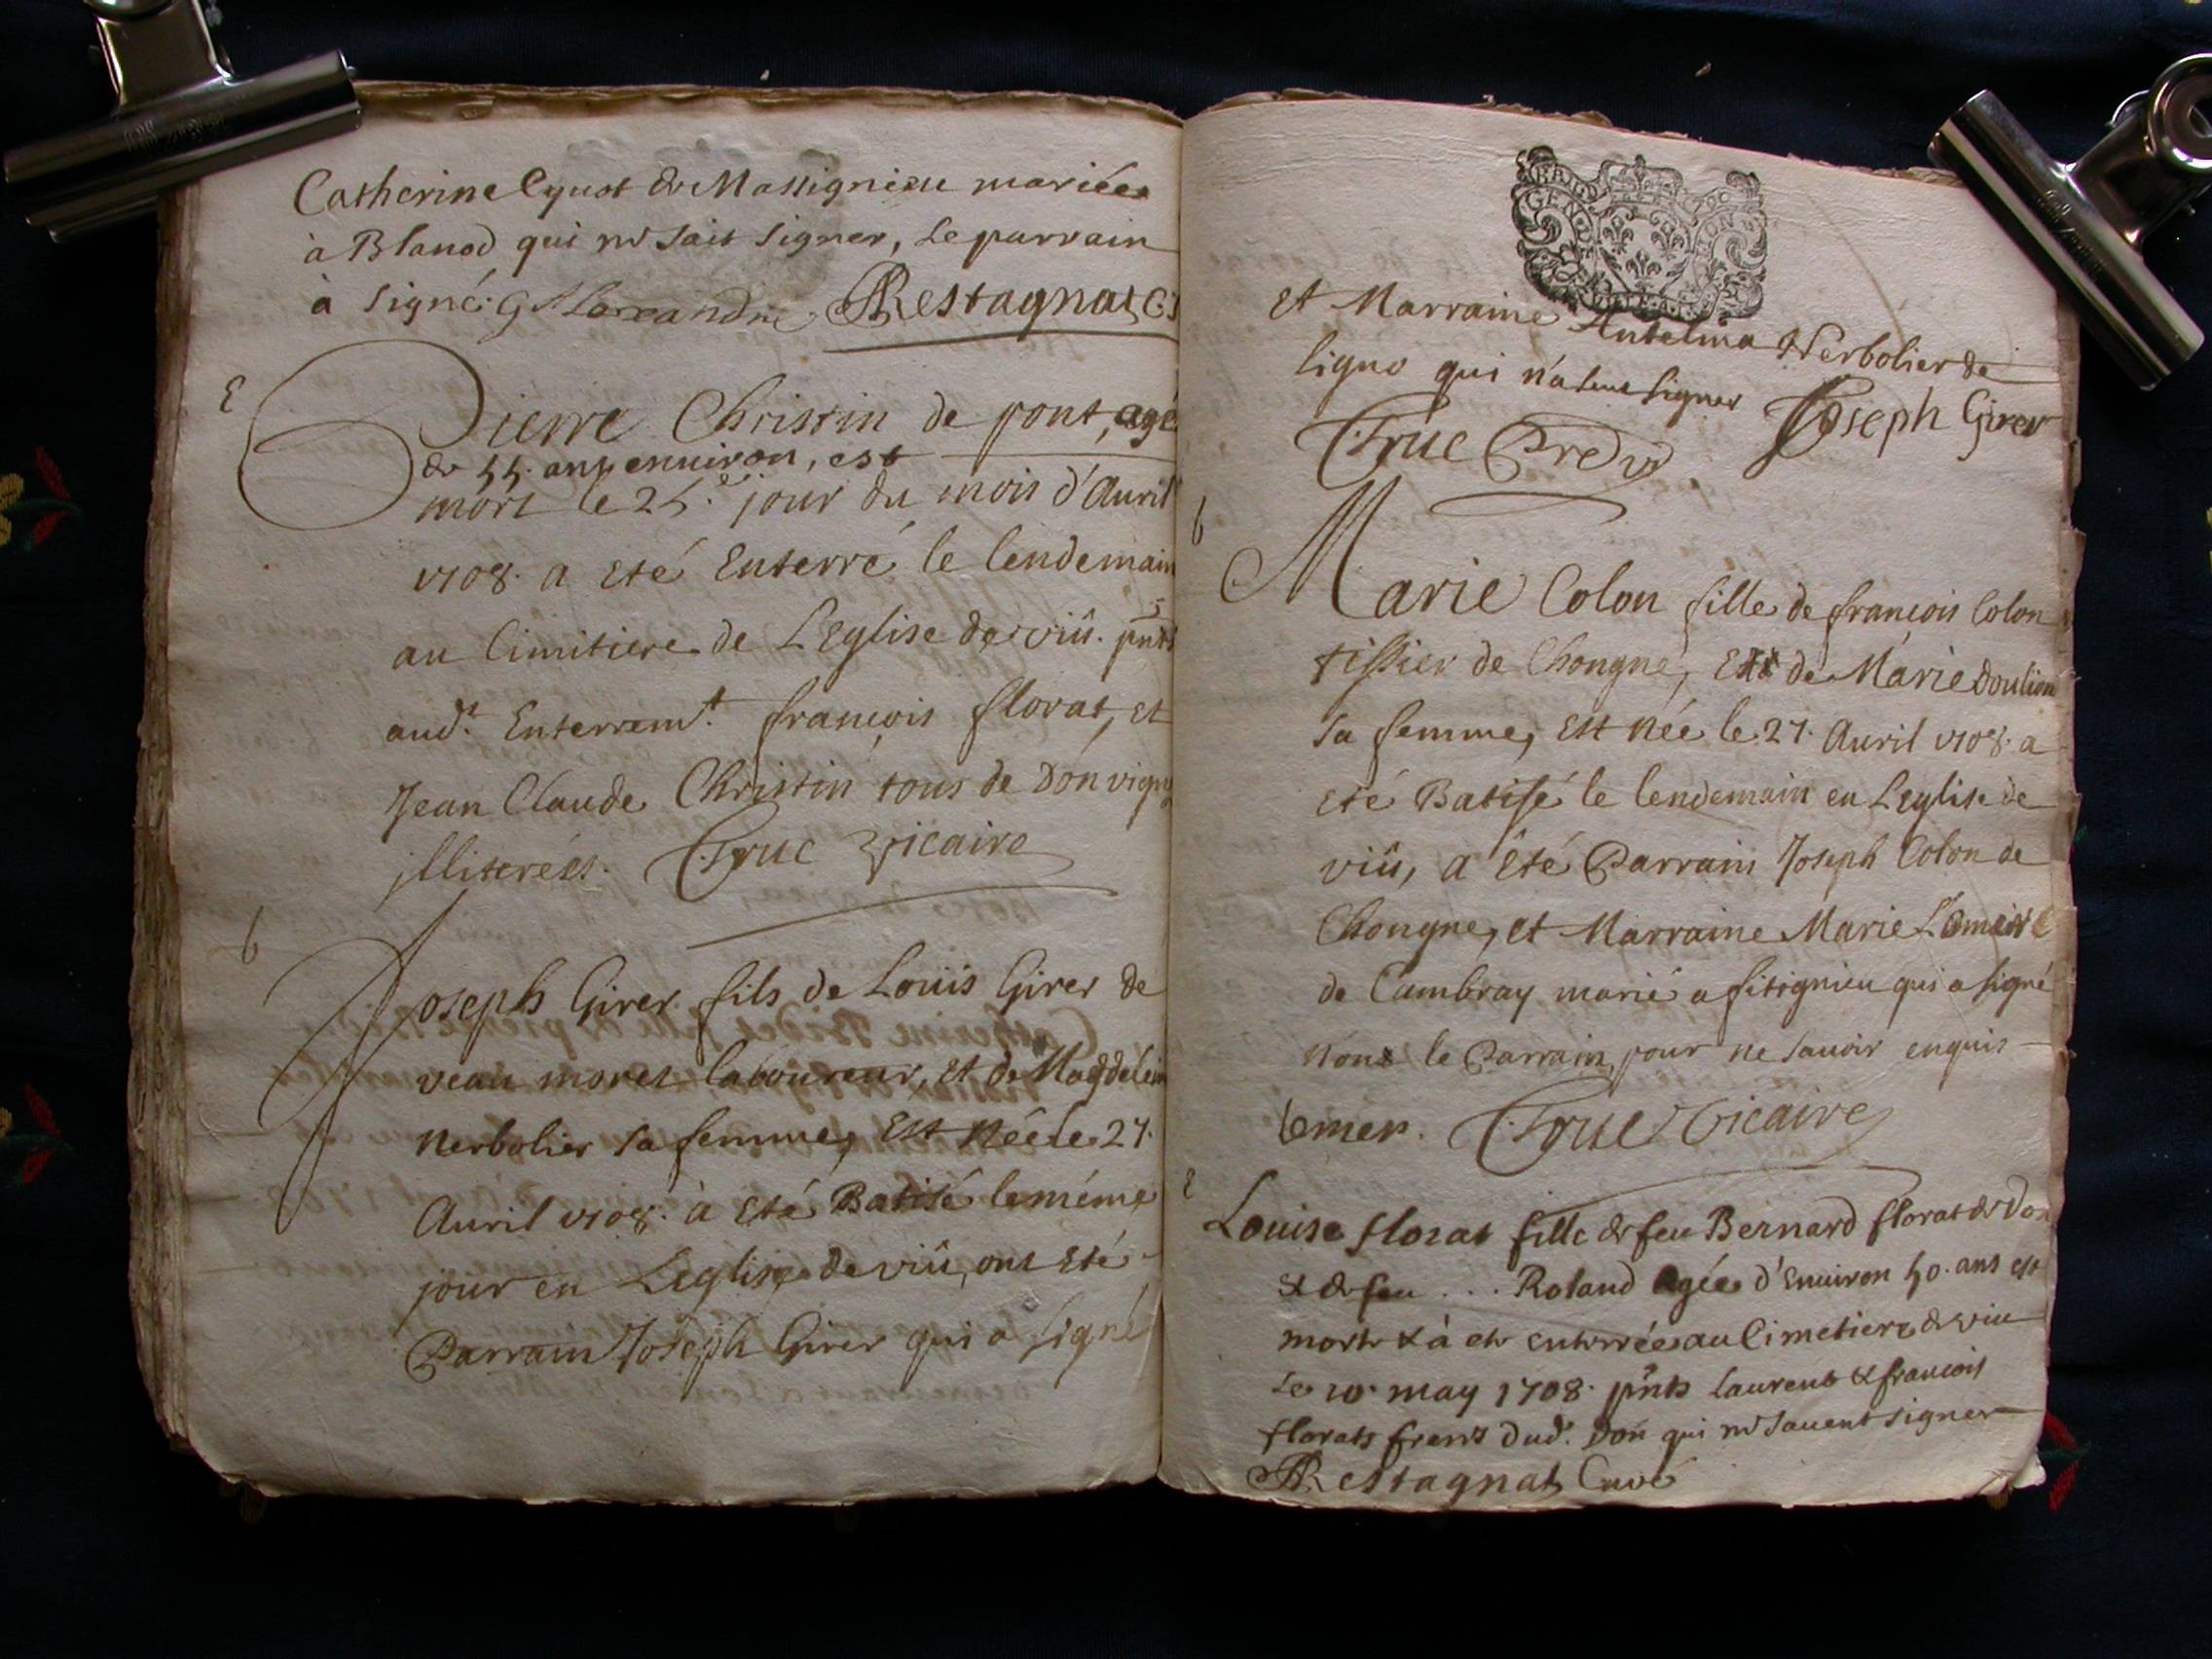 Catherine Cynot de Massignieu mariée
à Blanod qui ne sait signer, Le parrain
à signé. G Alexandre Restagnat
E
Pierre Christin de pont, agé
de 55. ans enuiron, est
mort le 25.e jour du mois d'Auril
1708. a eté Enterré le lendemain
au Cimitiere de L'Eglise de viû. pnts
aud.t Enterrem.t francois florat, et
Jean Claude Christin tous de Don vigny
jlliterées. Truc vicaire
b
Joseph Girer fils de Loüis Girer de
veau moret laboureur, et de Magdelein
Nerbolier sa femme, Est Née le 27.
Auril 1708. à eté Batisé le méme
jour en Leglise de viû, ont eté
Parrain Joseph Girer qui a signé
GEN
ET Marraine Antelma Nerbolier de
ligno qui n'a sceu signer Joseph Girer
Truc Pre v
b
Marie Colon fille de francois Colon
tissier de Chongne, Et de Marie Doulion
sa femme, Est Née le 27. Auril 1708. a
eté Batisé le lendemain en Leglise de
viû, a êté Parrain Joseph Colon de
Chongne, et Marraine Marie Lemaire
de Cambray marié a fitignieu qui a signé
Non le Parrain pour ne sauoir enquis
Truc Vicaire
E
Louise florat fille de feu Bernard florat de Don
& de feu ... Roland Agée d'Enuiron 50. ans est
morte & à ete enterrée au Cimetiere de viu
Le 10. may 1708. pnts laurent & francois
florats freres dud. Don qui ne sauent signer
Restagnat Curé